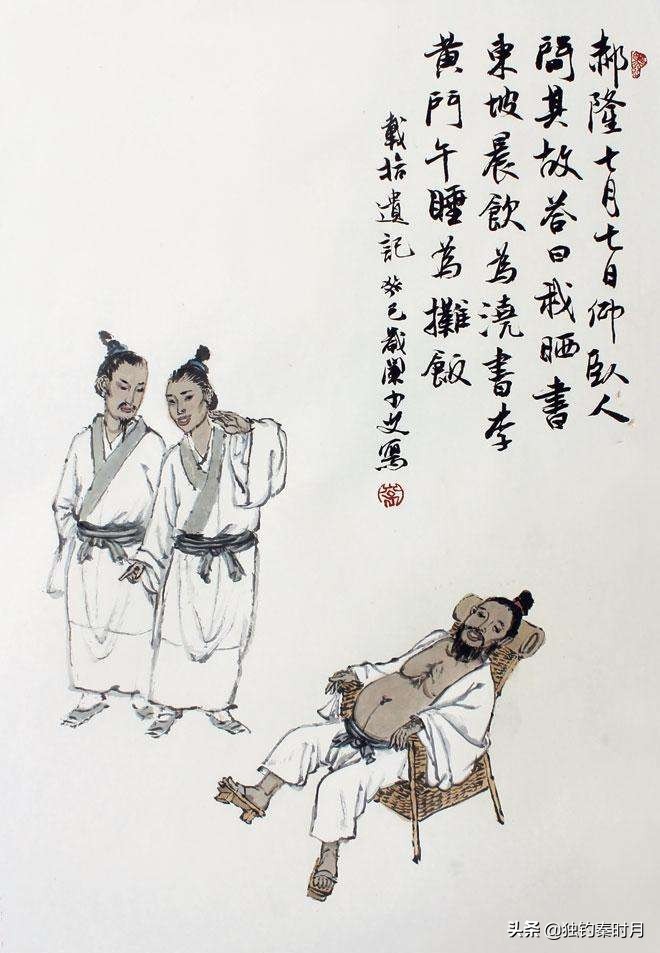 郝隆七月七日仰臥人
問其故荅曰我晒書
東坡晨飲為澆書李
黄門午睡為攤飯
載拾遺記 癸巳歲闌寫
头条 @独钓秦时月